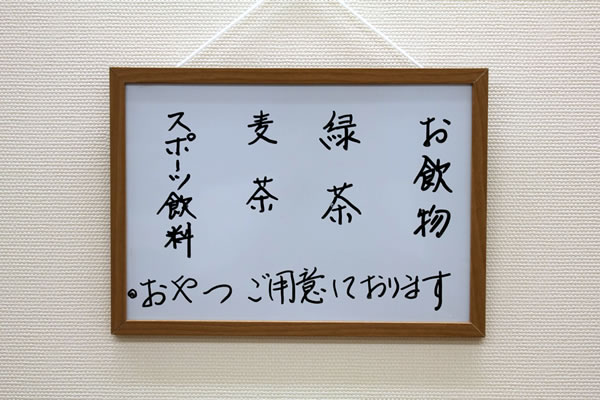 お飲物
緑茶
麦茶
スポーツ飲料
•おやつ ご用意しております